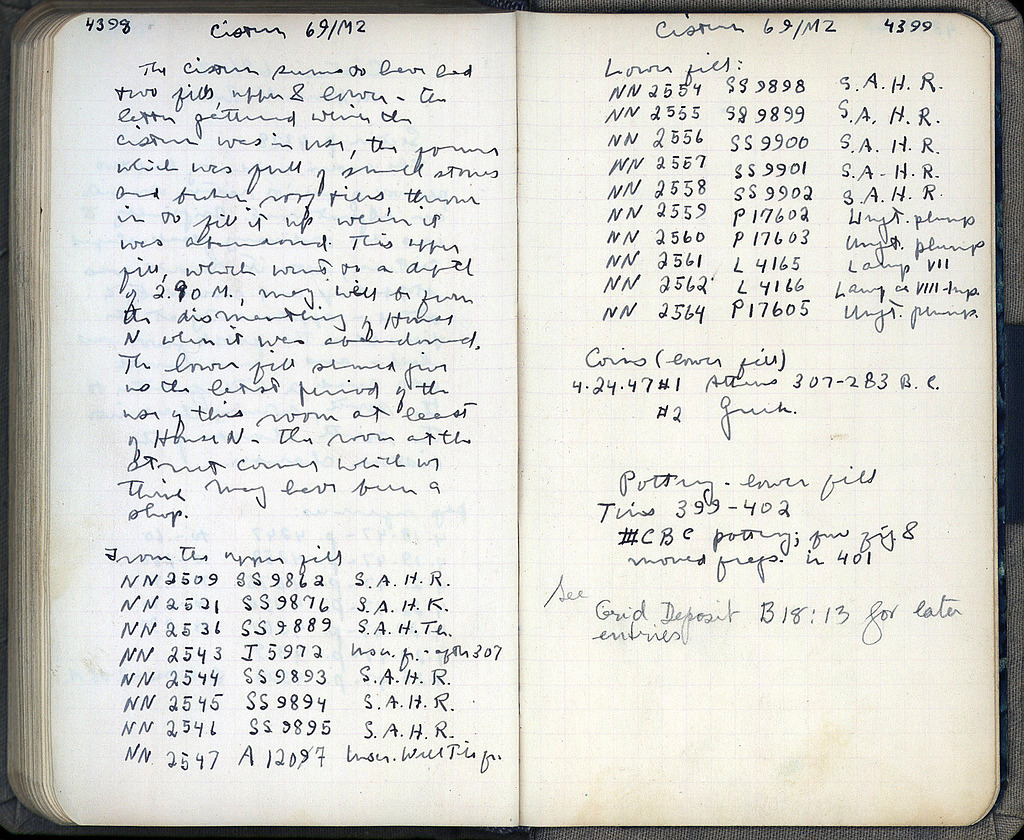 4398
Cistern 69/MZ
The cistern seems to have had
two fills, upper & lower - the
latter gathered when the
cistern was in use, the former
which was full of small stones
and broken roof tiles thrown
in to fill it up when it
was abandoned. This upper
fill, which went to a depth
of 2.90 M., may well be from
the dismantling of House
N when it was abandoned.
The lower fill seemed give
us the latest period of the
use of this room at least
of House N - the room at the
street corner which we
think may have been a
shop.
From the upper fill
NN 2509 SS 9862 S.A.H.R.
NN 2521 SS 9876 S.A.H.K.
NN 2536 SS 9889 S.A.H.Th.
NN 2543 I 5972 Inscr. fr. - after 307
NN 2544 SS 9893 S.A.H.R.
NN 2545 SS 9894 S.A.H.R.
NN 2546 SS 9895 S.A.H.R.
NN 2547 A 12097 Inscr. Well Tile fr.
Cistern 69/MZ
4399
Lower fill:
NN 2554 SS 9898 S.A.H.R.
NN 2555 SS 9899 S.A.H.R.
NN 2556 SS 9900 S.A.H.R.
NN 2557 SS 9901 S.A-H.R.
NN 2558 SS 9902 S.A.H.R.
NN 2559 P 17602 Ungt. plump
NN 2560 P 17603 Ungt. plump
NN 2561 L 4165 Lamp VII
NN 2562 L 4166 Lamp VIII-Imp.
NN 2564 P 17605 Ungt. plump.
Coins (lower fill)
4.24.47 #1 Athens 307-283 B.C.
#2 Greek.
Pottery - lower fill
Tins 399-402
#CBC pottery; &
mould frags. in 401
See
Grid Deposit B18:13 for later
entries